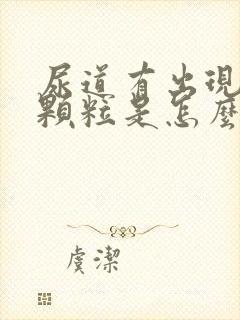 尿道有出現
顆粒是怎麼
虞潔